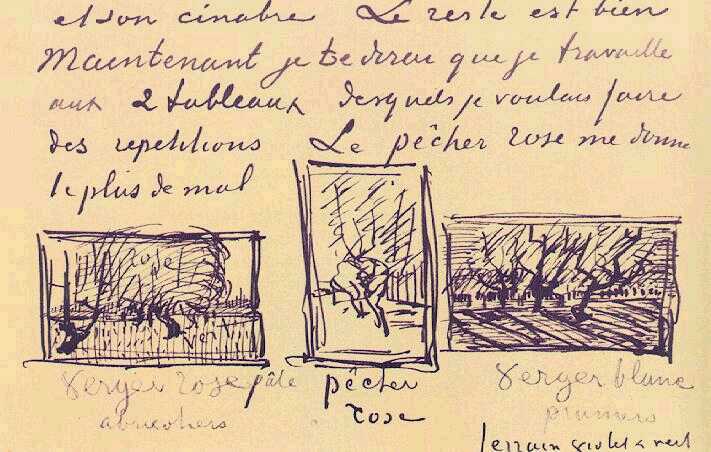 et son cinabre Le reste est bien
Maintenant je te dirai que je travaille
aux 2 tableaux desquels je voulais faire
des repetitions Le pêcher rose me donne
le plus de mal
rose
vert
Verger rose pâle
abricotiers
pêcher
rose
Verger blanc
pruniers
terrain violet & vert